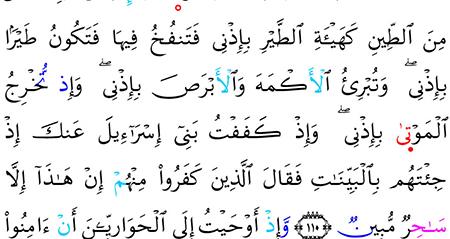 مِنَ ٱلطِّينِ كَهَيۡـَٔةِ ٱلطَّيۡرِ بِإِذۡنِي فَتَنفُخُ فِيهَا فَتَكُونُ طَيۡرَۢا
بِإِذۡنِيۖ وَتُبۡرِئُ ٱلۡأَكۡمَهَ وَٱلۡأَبۡرَصَ بِإِذۡنِيۖ وَإِذ تُّخۡرِجُ
ٱلۡمَوۡتىٰ بِإِذۡنِيۖ وَإِذۡ كَفَفۡتُ بَنِيٓ إِسۡرَٰٓءِيلَ عَنكَ إِذۡ
جِئۡتَهُم بِٱلۡبَيِّنَٰتِ فَقَالَ ٱلَّذِينَ كَفَرُواْ مِنۡهُمۡ إِنۡ هَٰذَآ إِلَّا
سَٰحِرٞ مُّبِينٞ ١١٠ وَإِذۡ أَوۡحَيۡتُ إِلَى ٱلۡحَوَارِيِّـۧنَ أَنۡ ءَامِنُواْ